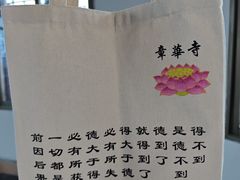 章華寺
得不到
是德不到
德到了
就得到了
得大于德
必有所失
德大于得
必有所获
一切都是
前因后果